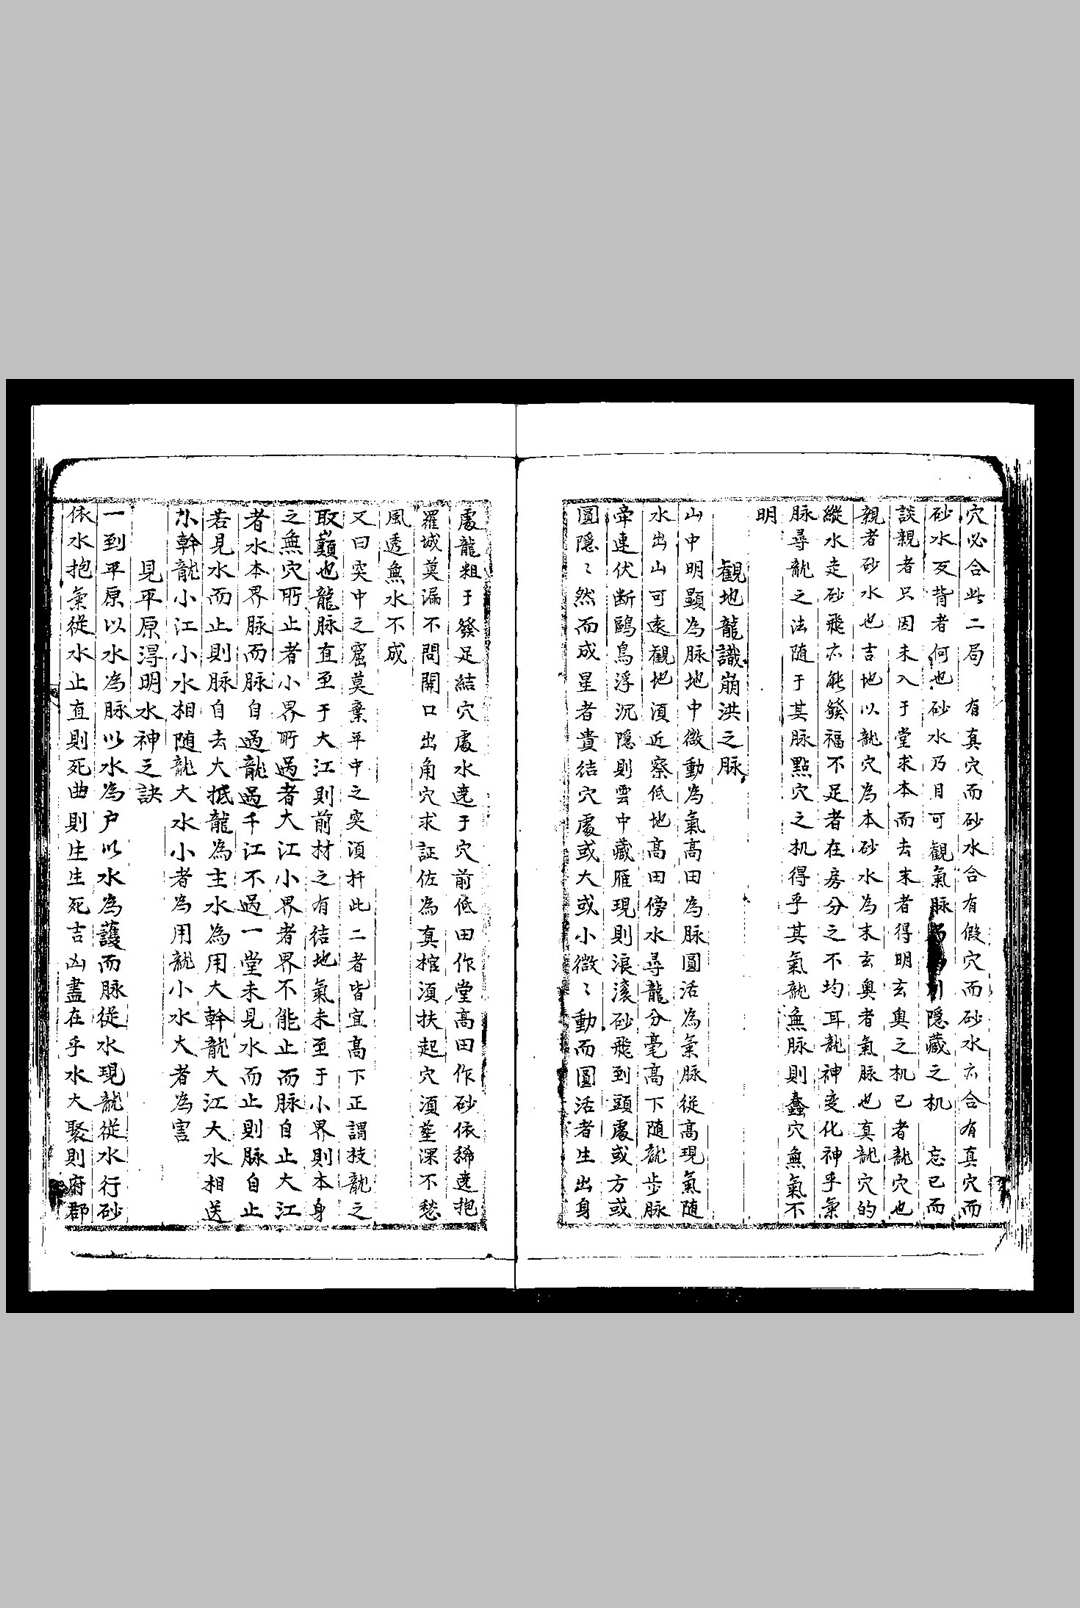 穴必合此二局　有真穴而砂水合有假穴而砂水亦合有真穴而
砂水反背者何也砂水乃目可觀氣脉隱藏之机　忘已而
談親者只因未入于堂求本而去末者得明玄奧之机已者龍穴也
親者砂水也吉地以龍穴為本砂水為末玄奧者氣脉也真龍穴的
縱水走砂飛亦能發福不足者在房分之不均耳龍神变化神乎氣
脉尋龍之法随于其脉點穴之机得乎其氣龍無脉則蠢穴無氣不
明
觀地龍識崩洪之脉
山中明顯為脉地中微動為氣高田為脉圓活為氣脉從高現氣随
水出山可遠觀地須近察低地高田傍水尋龍分毫高下随龍步脉
牵連伏断鷗鳥浮沉隱則雲中藏雁現則浪滚砂飛到頭處或方或
圓隱〻然而成星者貴結穴處或大或小微〻動而圓活者生出身
處龍粗于發足結穴處水遶于穴前低田作堂高田作砂依稀遶抱
羅城莫漏不問開口出角穴求証佐為真棺須扶起穴須塟深不愁
風透無水不成
又曰突中之窟莫棄平中之突須扦此二者皆宜高下正謂技龍之
取巔也龍脉直至于大江則前材之有結地氣未至于小界則本身
之無穴所止者小界所過者大江小界者界不能止而脉自止大江
者水本界脉而脉自過龍過千江不過一堂未見水而止則脉自止
若見水而止則脉自去大抵龍為主水為用大幹龍大江大水相送
小幹龍小江小水相随龍大水小者為用龍小水大者為害
見平原淂明水神之訣
一到平原以水為脉以水為户以水為護而脉從水現龍從水行砂
依水抱氣從水止直則死曲則生生死吉凶盡在乎水大聚則府郡